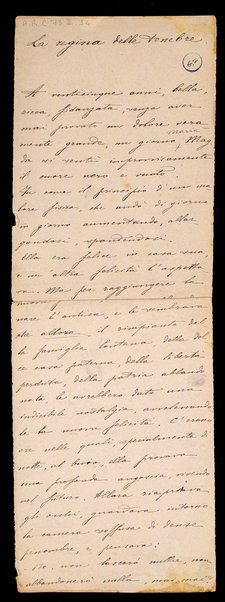 A.R.C. 15 I. 34
La regina delle tenebre.
A venticinque anni, bella,
ricca, fidanzata, senza aver
mai provato un dolore vera
mente grande, un giorno, Maria Mag
da si sentì improvvisamente
il cuore nero e vuoto.
Fu come il principio d'un ma
lore fisico, che andò di giorno
in giorno aumentando, allar
gandosi, spandendosi.
Ella era felice in casa sua,
e un'altra felicità l'aspetta
va. Ma per raggiungere la
nuova
nare l'antica, e le sembrava
che allora il rimpianto del
la famiglia lontana, della dol
ce casa paterna, della libertà
perduta, della patria abbando
nata le avrebbero dato una
indicibile nostalgia, avvelenando
le la nuova felicità. C'erano
ore nelle quali, specialmente di
notte, al buio, ella provava
una profonda angoscia, vivendo
nel futuro. Allora riapriva
gli occhi, guardava intorno
la camera soffusa di dense
penombre, e pensava:
No, non lascerò nulla, non
abbandonerò nulla, mai, mai